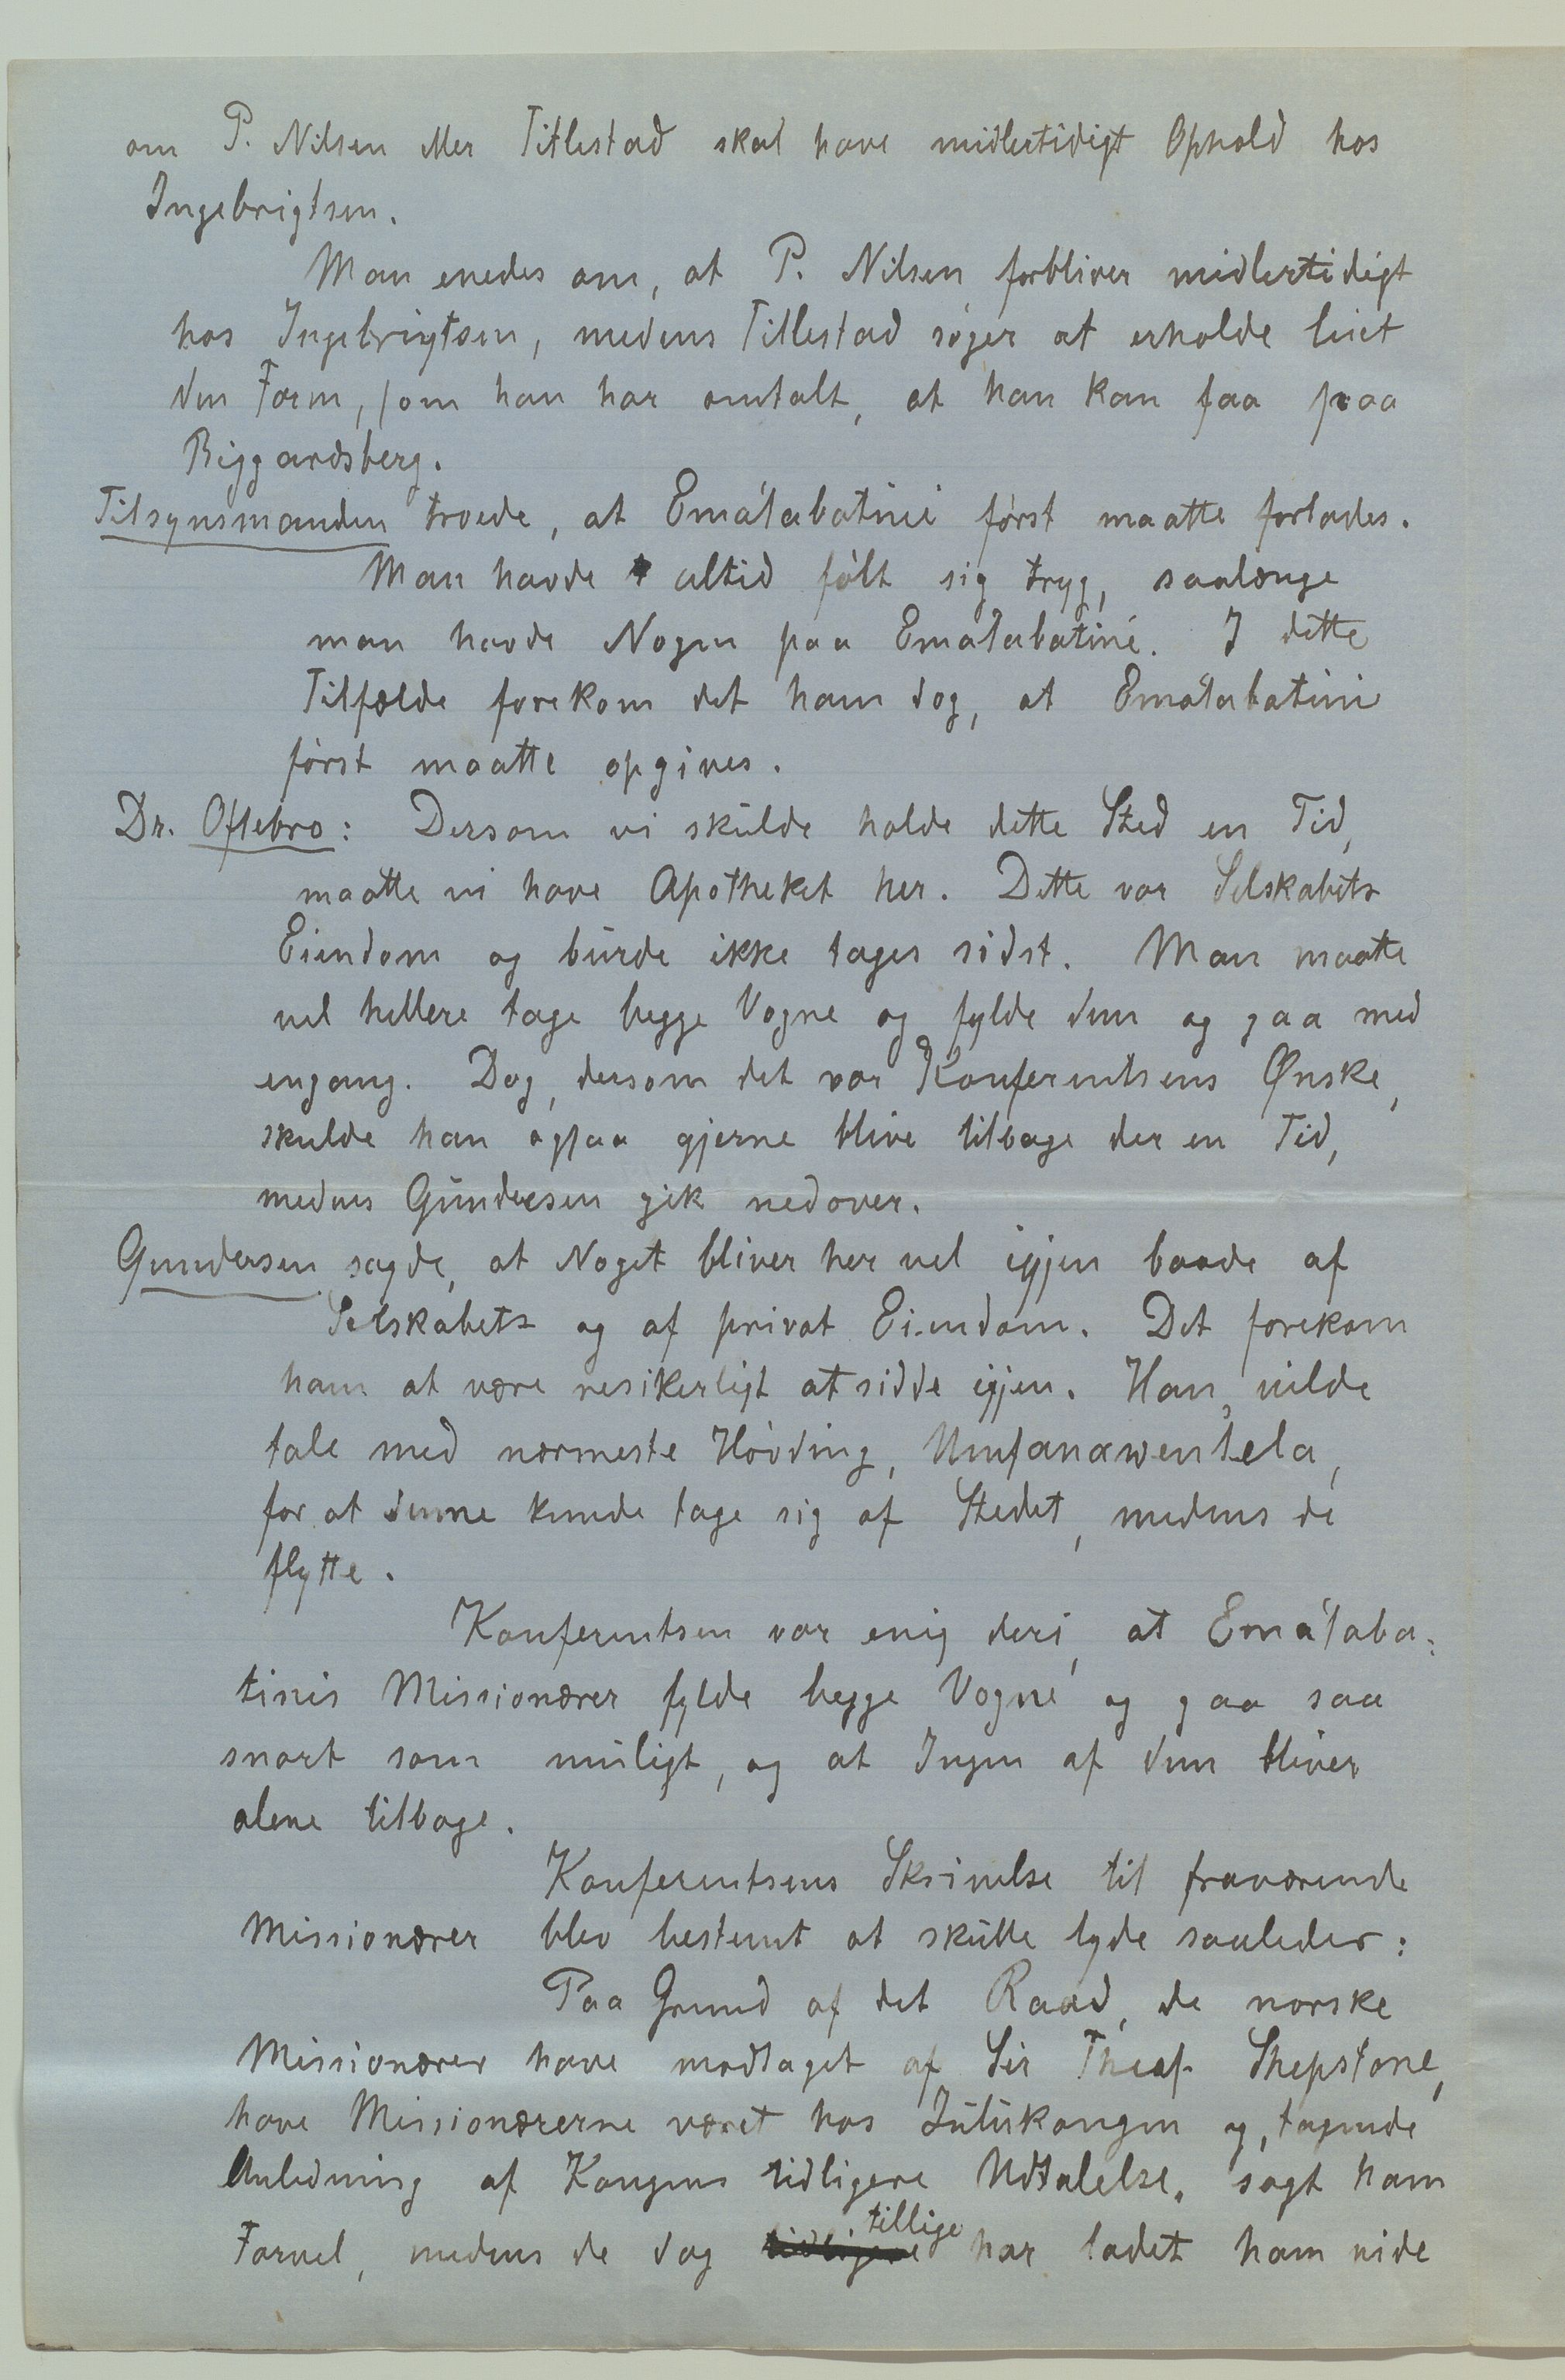 om P. Nilsen eller Titlestad skal have midlertidigt Ophold hos
Ingebrigtsen.
Man enedes om, at P. Nilsen forbliver midlertidigt
hos Ingebrigtsen, medens Titlestad søger at erholde leiet
den Farm, som han har omtalt, at han kan faa paa
Biggardsberg.
Tilsynsmanden troede, at Emátabatini først maatte forlades.
Man havde altid følt sig tryg, saalænge
man havde Nogen paa Ematabatini. I dette
Tilfælde forekom det ham dog, at Emátabatini
først maatte opgives.
Dr. Oftebro: Dersom vi skulde holde dette Sted en Tid,
maatte vi have Apotheket her. Dette var Selskabets
Eiendom og burde ikke tages sidst. Man maatte
vel hellere tage begge Vogne og fylde dem og gaa med
engang. Dog, dersom det var Konferentsens Ønske,
skulde han ogsaa gjerne blive tilbage der en Tid,
medens Gundersen gik nedover.
Gundersen sagde, at Noget bliver her vel igjen baade af
Selskabets og af privat Eiendom. Det forekom
ham at være resikerligt at sidde igjen. Han vilde
tale med nærmeste Høvding, Umfanawentela,
for at denne kunde tage sig af Stedet, medens de
flytte.
Konferentsen var enig deri, at Emátaba-
tinis Missionærer fylde begge Vogne og gaa saa
snart som muligt, og at Ingen af dem bliver
alene tilbage.
Konferentsens Skrivelse til fraværende
Missionærer blev bestemt at skulle lyde saaledes:
Paa Grund af det Raad, de norske
Missionærer have modtaget af Sir Theof. Shepstone,
have Missionærerne været hos Zulukongen og, tagende
Anledning af Kongens tidligere Udtalelse, sagt ham
Farvel, medens de dog tidligere tillige har ladet ham vide